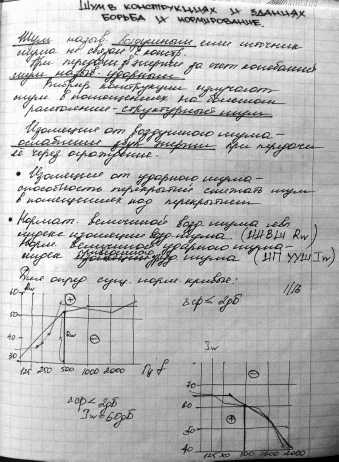 Шум в конструкциях и зданиях
борьба и нормирование.
Шум назыв. воздушным если источник
шума не связан с констр.
При передачи энергии за счёт колебаний
шум назыв. ударным
конструкции излучают
шум в помещениях на большом
расстоянии - структурный шум
Изоляция от воздушного шума -
ослабление звук. энергии при передачи
её через ограждение.
• Изоляция от ударного шума -
способность перекрытий снижать шум
в помещениях над перекрытием
• Нормат. величиной возд. шума явл.
индекс изоляции возд. шума (Rw)
Норм. величиной ударного шума -
индекс шума (Iw)
опред. сущ. норм. кривые:
εср < 2дБ
60
Rw
+
50
40
−
30
125 250 500 1000 2000 Гц f
εср < 2дБ
Iw = 60дБ
Iw
−
70
60
+
50
40
2000